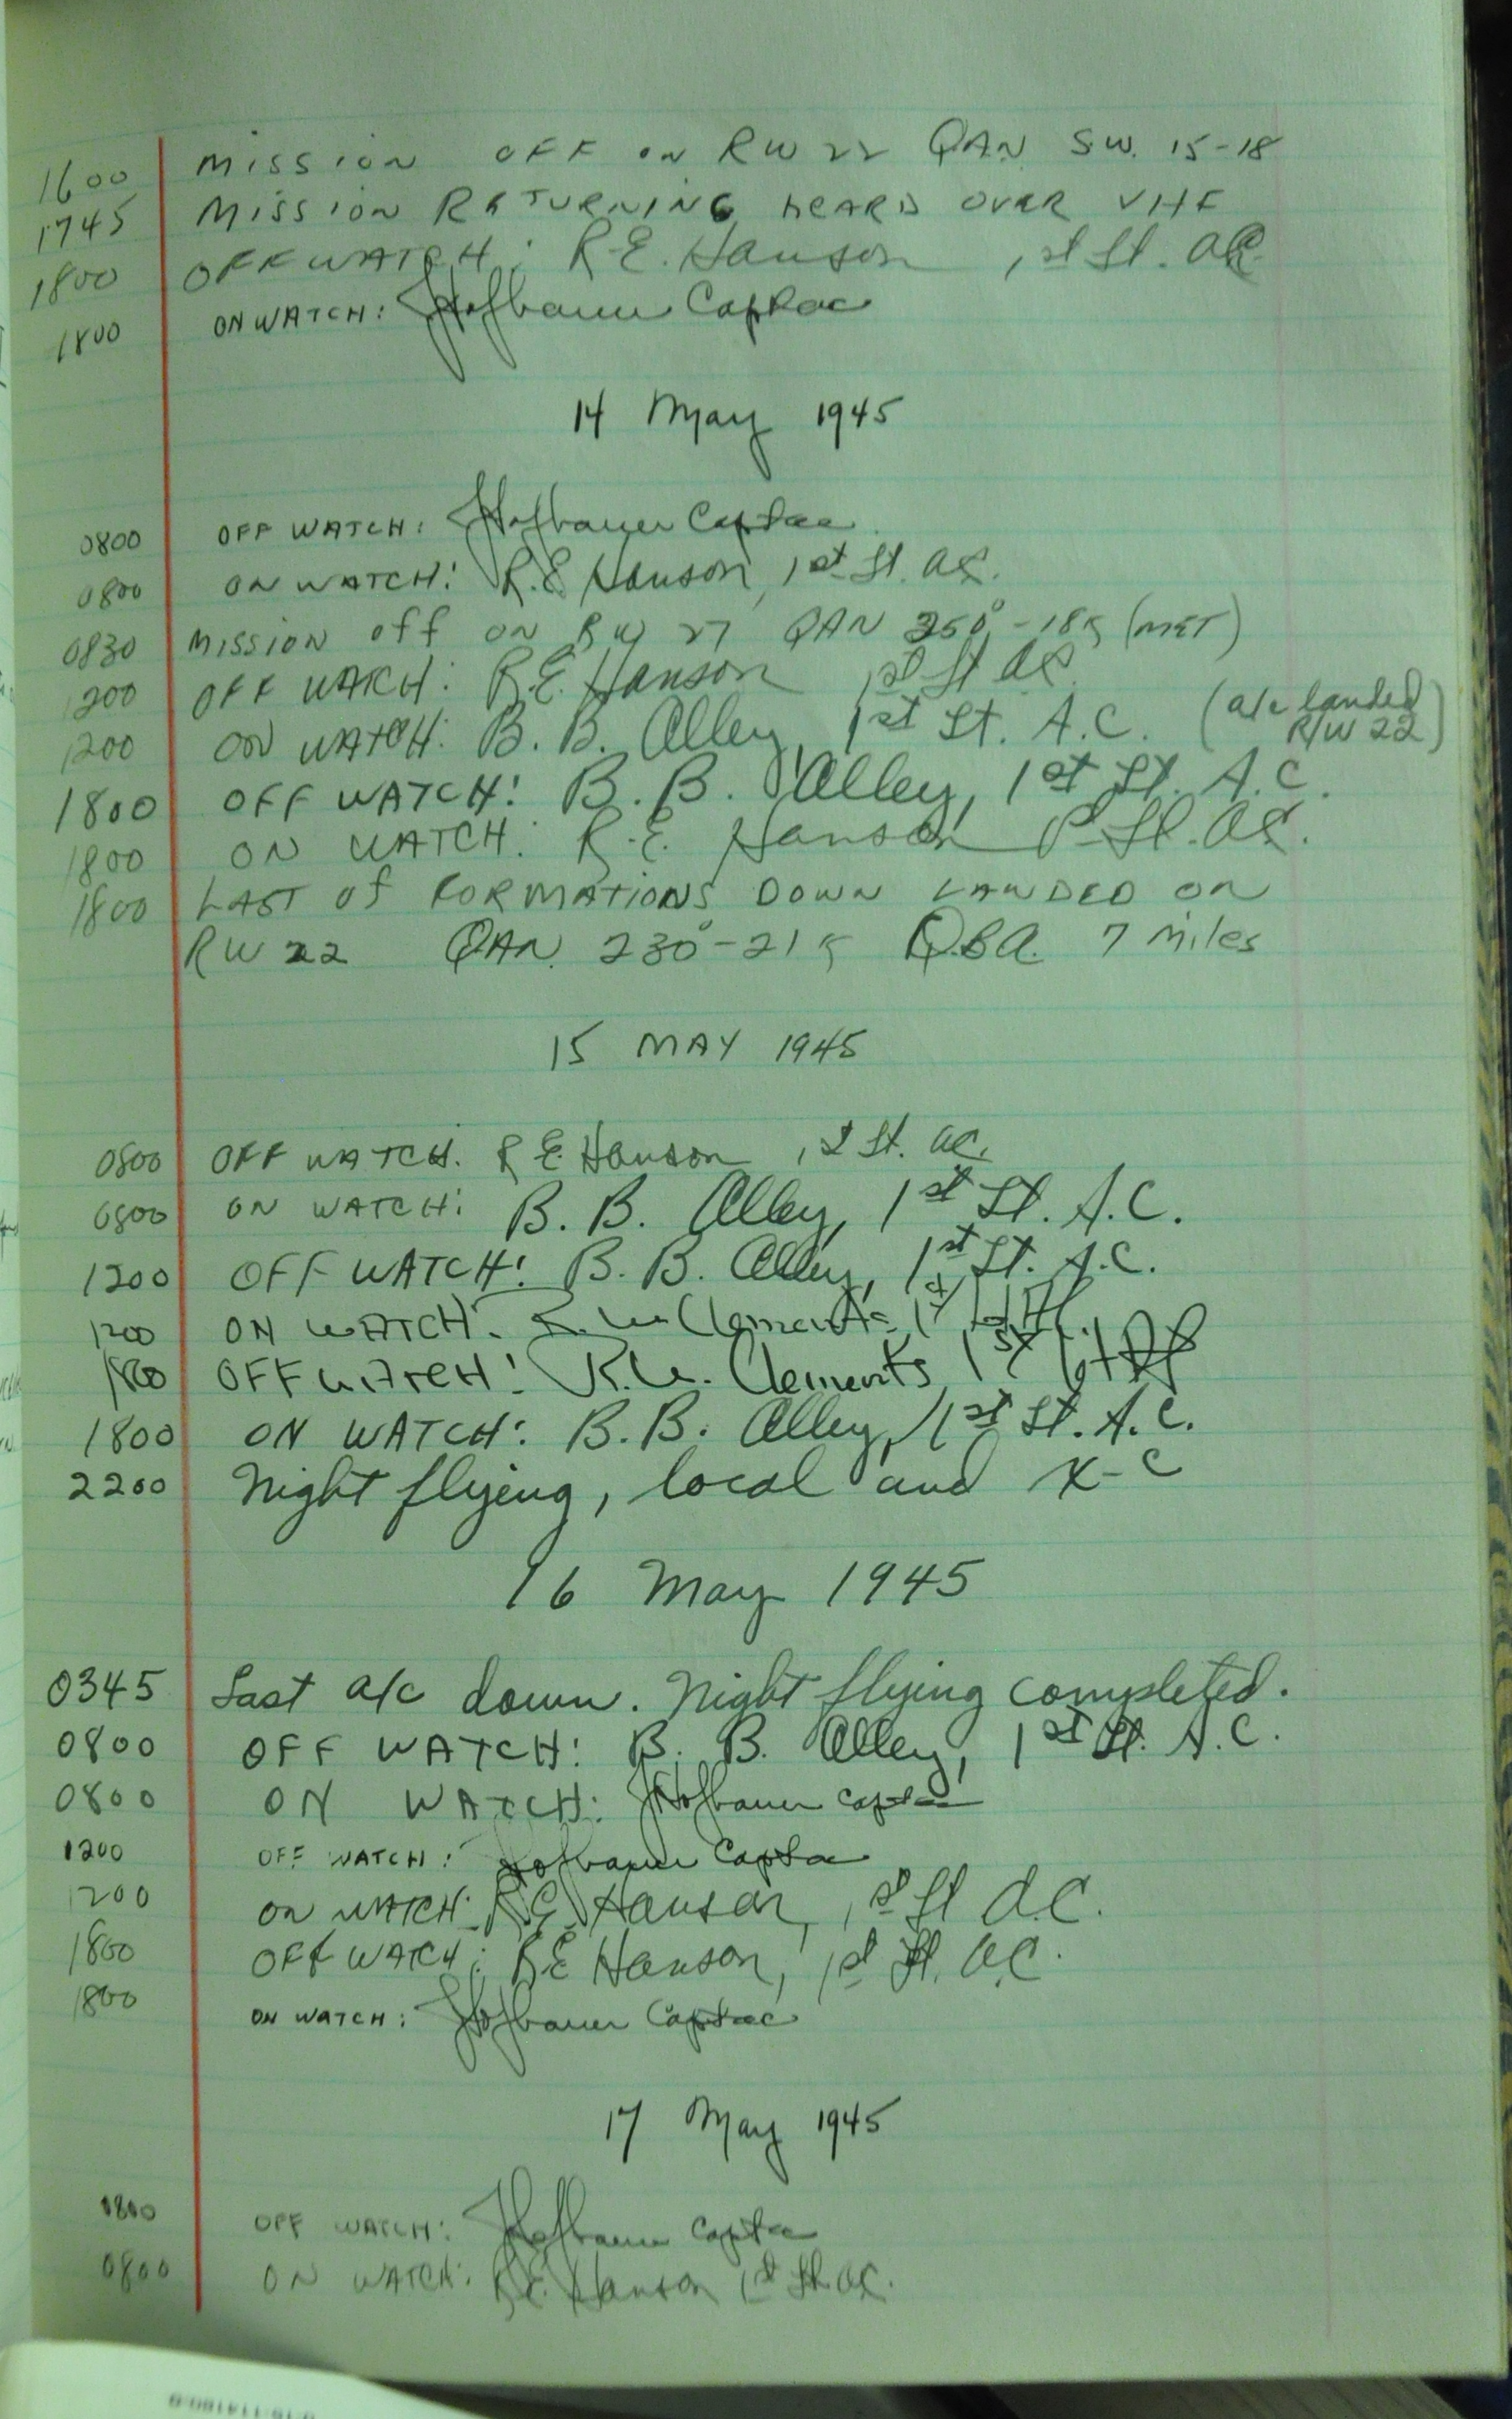 1600 MISSION OFF ON RW 22 QAN SW. 15-18
1745 MISSION RETURNING HEARD OVER VHF
1800 OFF WATCH: R.E. Hanson, 1st Lt. AC.
1800 ON WATCH: Hofbauer Capt ac
14 May 1945
0800 OFF WATCH: Hofbauer Capt ac
0800 ON WATCH: R.E. Hanson, 1st Lt. AC.
0830 MISSION OFF ON RW 27 QAN 250°-18K (MET)
1200 OFF WATCH: R.E. Hanson 1st Lt AC
1200 ON WATCH: B. B. Alley, 1st Lt. A.C. (a/c landed
R/W 22)
1800 OFF WATCH: B. B. Alley, 1st Lt. A.C.
1800 ON WATCH: R.E. Hanson 1st Lt. AC.
1800 LAST OF FORMATIONS DOWN LANDED ON
RW 22 QAN. 230°-21K Q.B.A. 7 Miles
15 MAY 1945
0800 OFF WATCH: R E Hanson, 1st Lt. AC.
0800 ON WATCH: B. B. Alley, 1st Lt. A.C.
1200 OFF WATCH: B. B. Alley, 1st Lt. A.C.
1200 ON WATCH: R. W. Clements 1st Lt
1800 OFF WATCH: R.W. Clements, 1st Lt
1800 ON WATCH: B. B. Alley, 1st Lt. A.C.
2200 Night flying, local and X-C
16 May 1945
0345 Last a/c down. Night flying completed.
0800 OFF WATCH: B. B. Alley, 1st Lt. A.C.
0800 ON WATCH: Hofbauer Capt ac
1200 OFF WATCH: Hofbauer Capt ac
1200 ON WATCH: R.E. Hanson, 1st Lt A.C.
1800 OFF WATCH: R.E. Hanson, 1st Lt. A.C.
1800 ON WATCH: Hofbauer Capt ac
17 May 1945
0800 OFF WATCH: Hofbauer Capt ac
0800 ON WATCH: R.E. Hanson 1st Lt. AC.